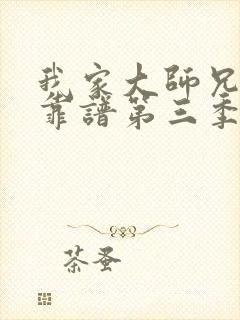 我家大師兄
靠譜第三季
茶蚤